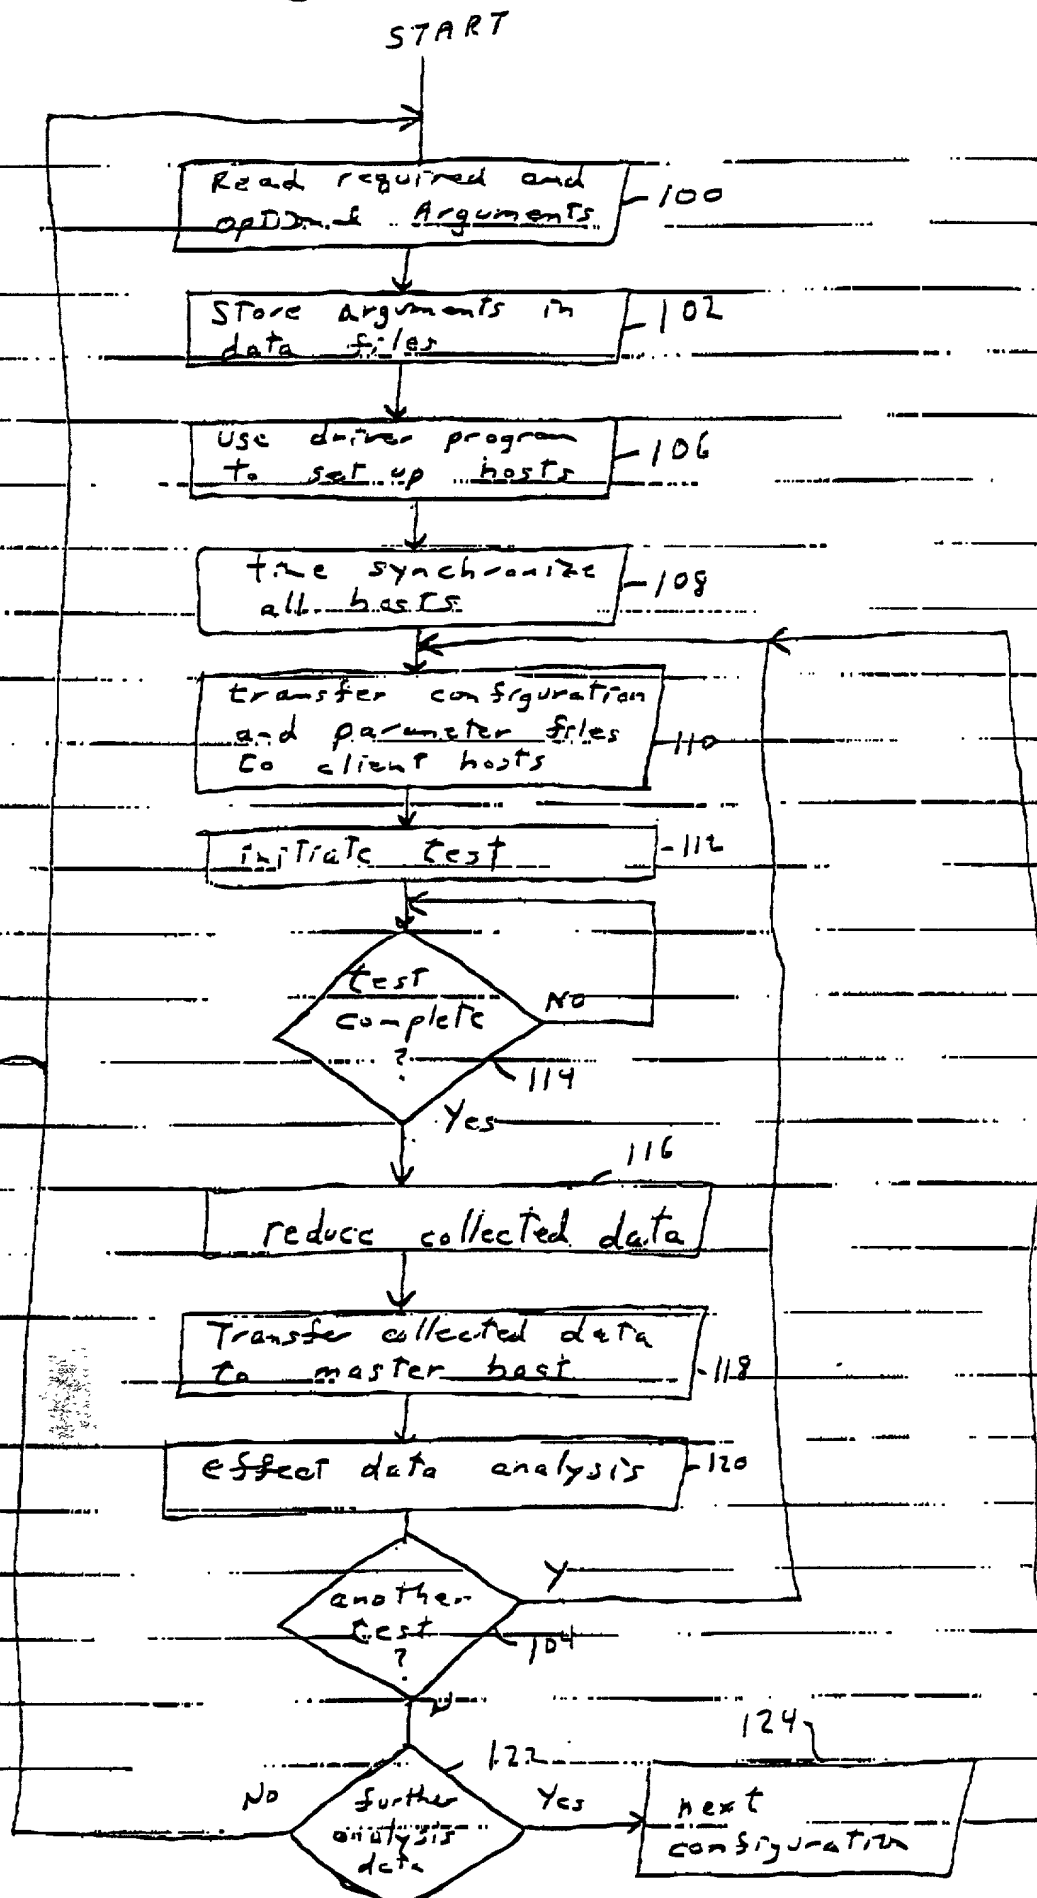 START
Read required and
optional Arguments
100
Store arguments in
data files
102
Use driver program
to set up hosts
106
time synchronize
all hosts
108
transfer configuration
and parameter files
to client hosts
110
initiate test
112
test
complete
?
No
114
Yes
116
reduce collected data
Transfer collected data
to master host
118
effect data analysis
120
another
test
?
Y
104
N
122
further
analysis
data
No
Yes
124
next
configuration